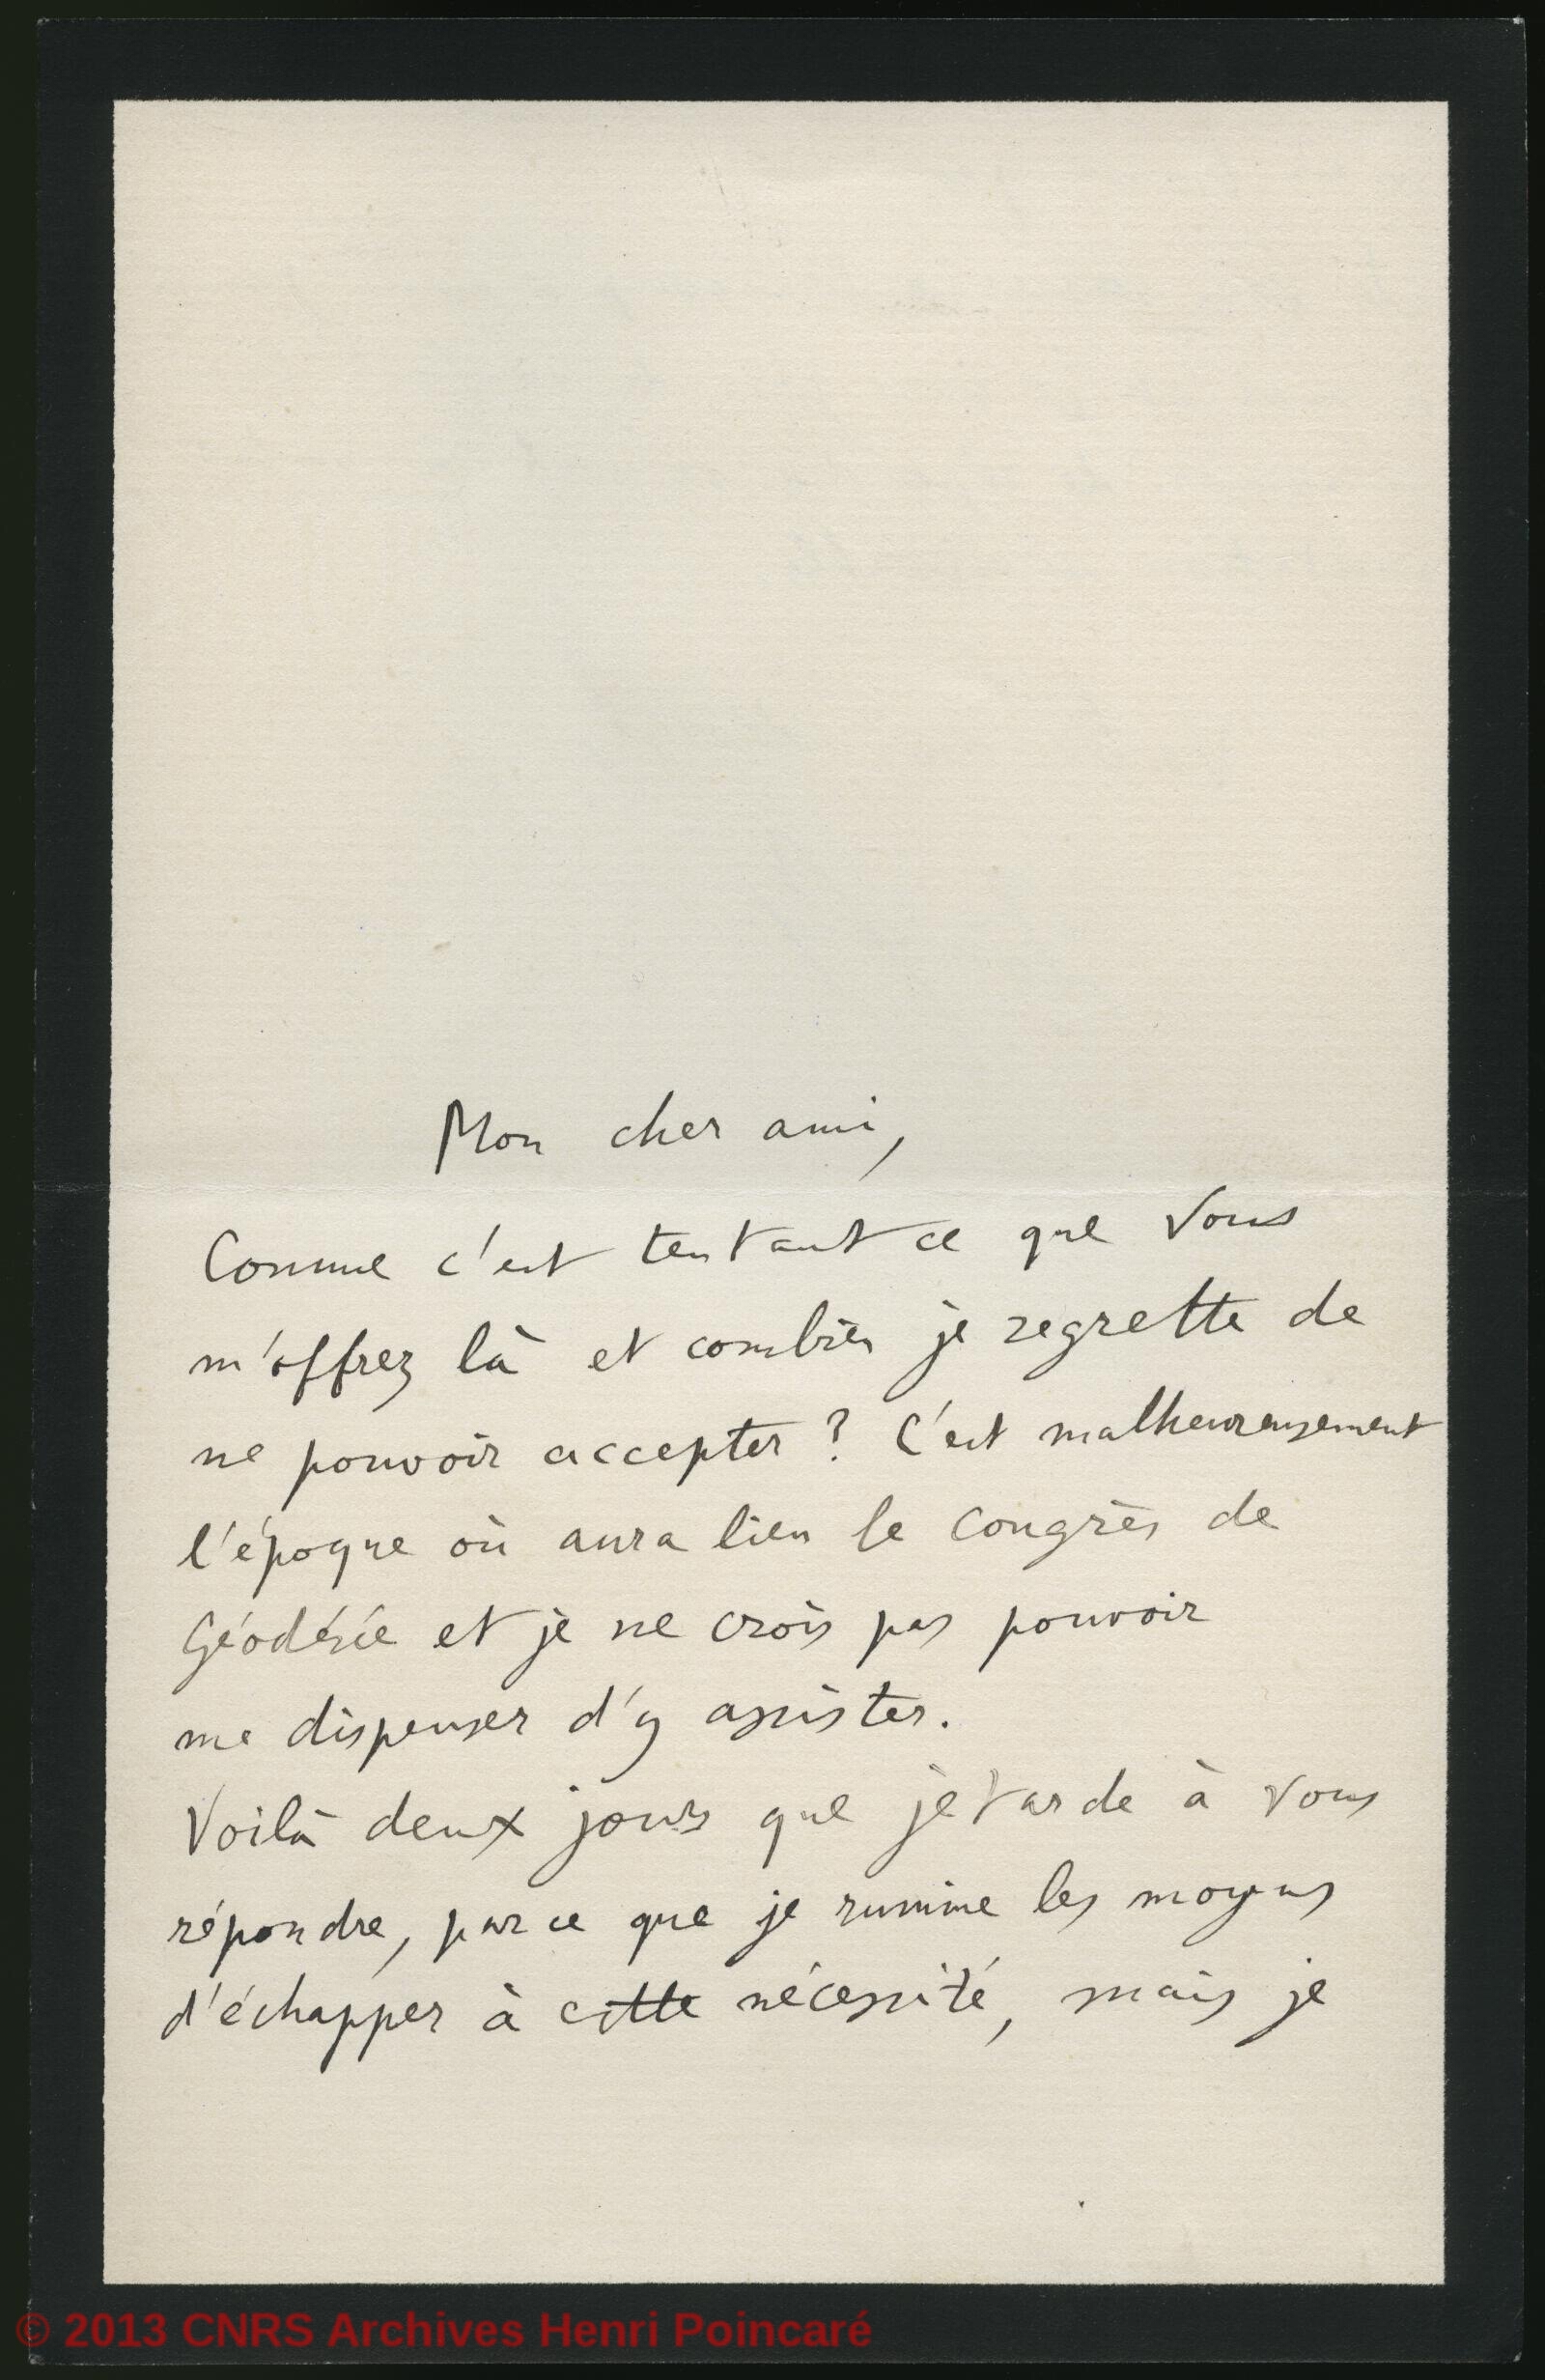 Mon cher ami,
Comme c'est tentant ce que vous
m'offrez là et combien je regrette de
ne pouvoir accepter ? C'est malheureusement
l'époque où aura lieu le Congrès de
Géodésie et je ne crois pas pouvoir
me dispenser d'y assister.
Voilà deux jours que je tarde à vous
répondre, parce que je rumine les moyens
d'échapper à cette nécessité, mais je
© 2013 CNRS Archives Henri Poincaré